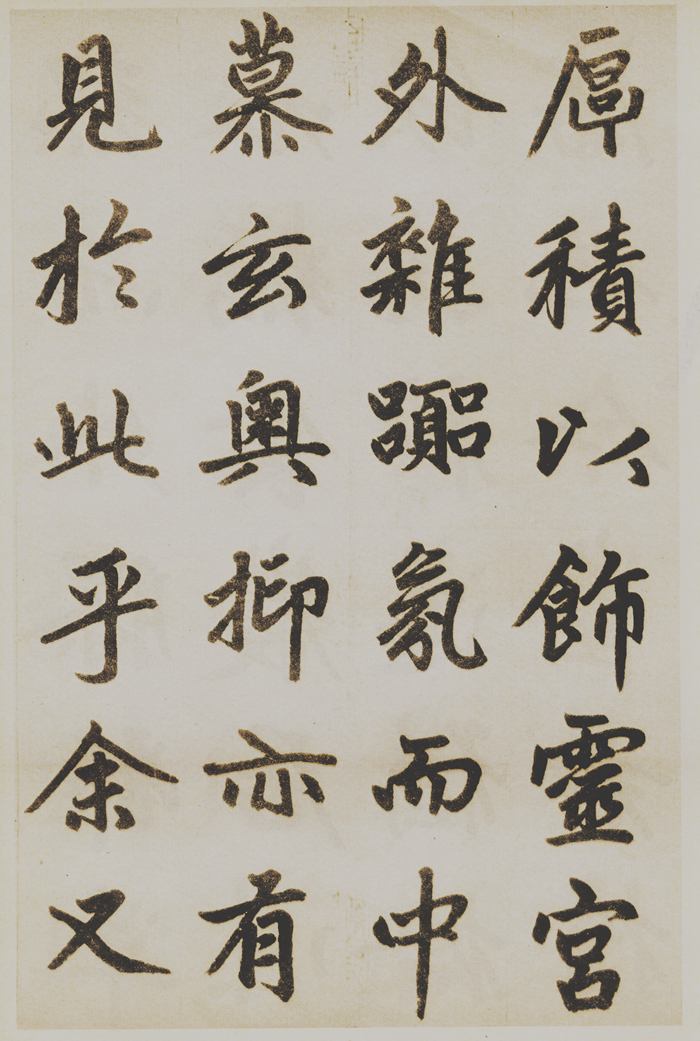 厚積以飾靈宮
外雜囂氛而中
慕玄奧抑亦有
見於此乎余又